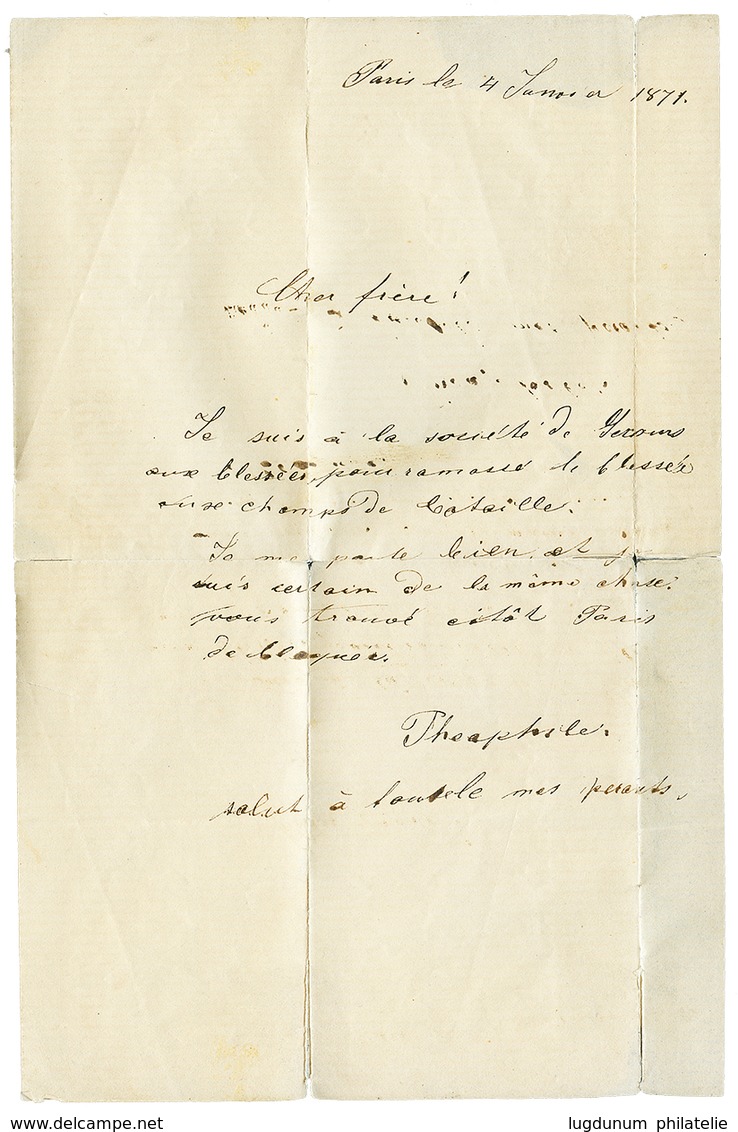 Paris le 4 Janvier 1871.
Cher frère!
Je suis à la société de Secours
aux blessées, pour ramassé le blessée
champs de bataille.
Je me porte bien, et je
suis certain de la même chose.
vous trouvé citôt Paris
de bloquer.
Theophile.
salut à toutele mes perents,
www.delcampe.net
lugdunum philatelie